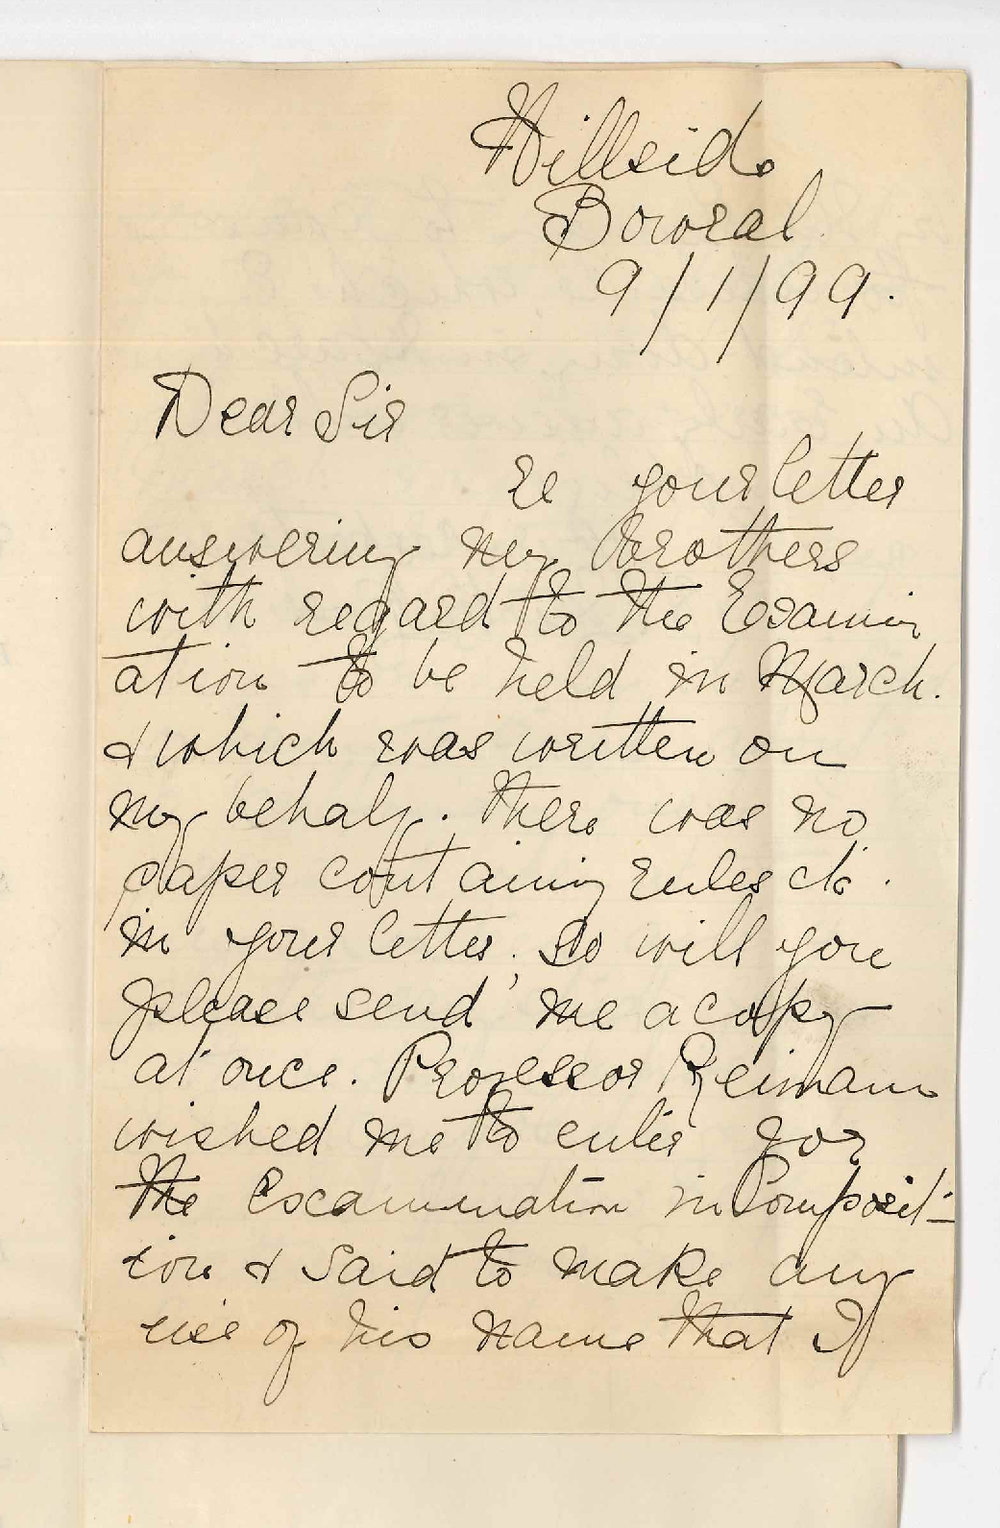 Hillside
Bowral
9/1/99.
Dear Sir
re your letter
answering my brothers
with regard to the Examin
ation to be held in March.
& which was written on
my behalf. There was no
paper containing rules etc.
in your letter, so will you
please send me a copy
at once. Professor Reimann
wished me to enter for
the Examination in Composit-
ion & said to make any
use of his name that I